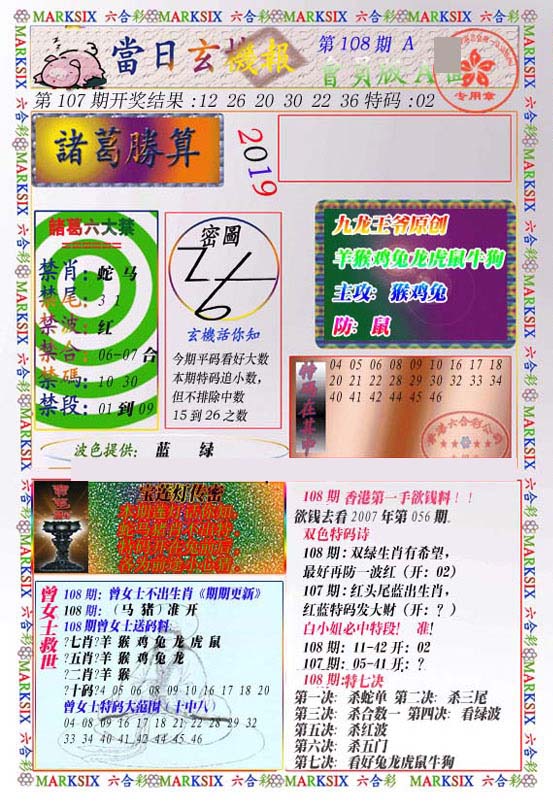 MARKSIX 六合彩 MARKSIX 六合彩 MARKSIX 六合彩 MARKSIX
當日玄機報
第108期 A
會員版A
专用章
第107期开奖结果:12 26 20 30 22 36特码:02
諸葛勝算
2019
諸葛六大禁
禁肖:蛇 马
禁尾:3 1
禁波:红
禁合:06-07 合
禁碼:10 30
禁段:01 到 09
密圖
玄機活你知
今期平码看好大数
本期特码追小数,
但不排除中数
15 到 26 之数
九龙王爷原创
羊猴鸡兔龙虎鼠牛狗
主攻:猴鸡兔
防:鼠
特碼在其中
04 05 06 08 09 10 16 17 18
20 21 22 28 29 30 32 33 34
40 41 42 44 45 46
波色提供: 蓝 绿
宝莲灯传密
108期 香港第一手欲钱料!!
欲钱去看 2007 年第 056 期.
双色特码诗
108 期:双绿生肖有希望,
最好再防一波红(开:02)
107 期:红头尾蓝出生肖,
红蓝特码发大财(开:?)
白小姐必中特段! 准!
108 期:11-42 开:02
107 期:05-41 开:?
108 期:特七决
第一决: 杀蛇单 第二决: 杀三尾
第三决: 杀合数一 第四决: 看绿波
第五决: 杀红波
第六决: 杀五门
第七决: 看好兔龙虎鼠牛狗
曾女士救世
108 期: 曾女士不出生肖《期期更新》
108 期:(马 猪)准 开
108 期曾女士送码料:
?七肖?羊 猴 鸡 兔 龙 虎 鼠
?五肖?羊 猴 鸡 兔 龙
?二肖?羊 猴
?十码?4 05 06 08 09 10 16 17 18 20
曾女士特码大范围(十中八)
04 08 09 16 17 18 21 22 28 29 32
33 34 40 41 42 44 45 46
MARKSIX 六合彩 MARKSIX 六合彩 MARKSIX 六合彩 MARKSIX